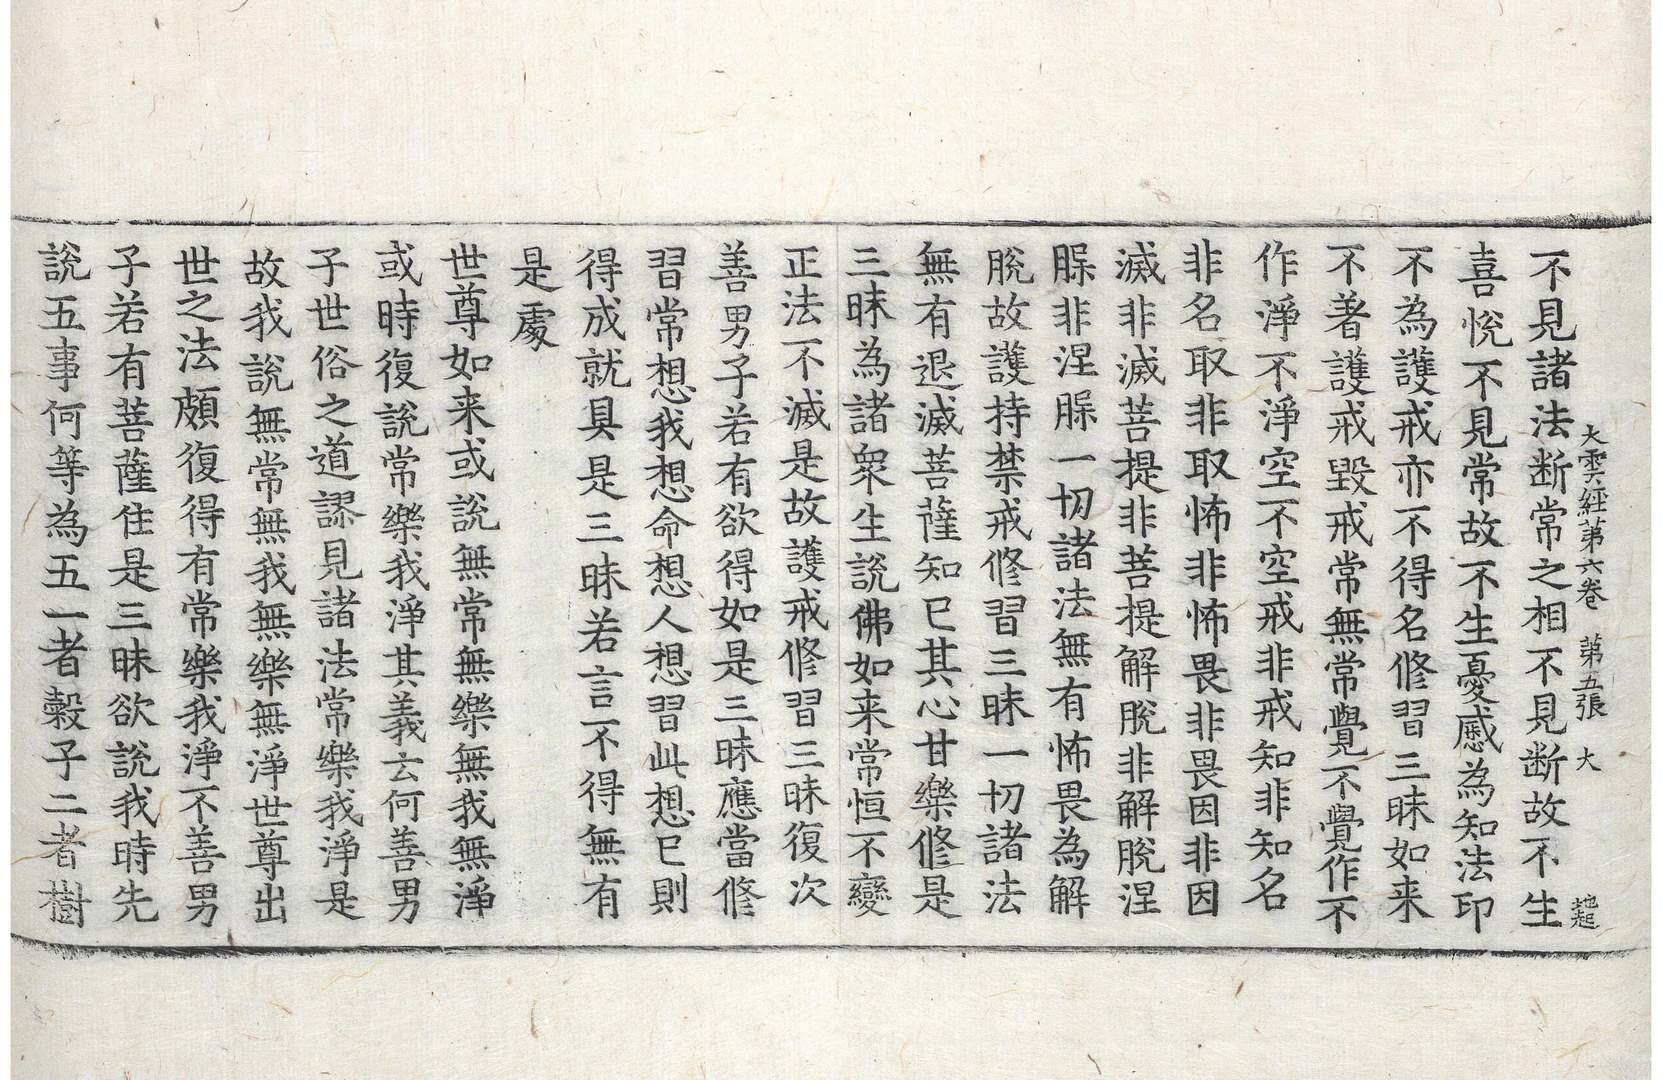 大雲經第六卷 第五張 大
不見諸法断常之相不見断故不生
喜悅不見常故不生憂慼為知法印
不為護戒亦不得名修習三昧如来
不著護戒毀戒常無常覺不覺作不
作淨不淨空不空戒非戒知非知名
非名取非取怖非怖畏非畏因非因
滅非滅菩提非菩提解脫非解脫涅
𦞤非涅𦞤一切諸法無有怖畏為解
脫故護持禁戒修習三昧一切諸法
無有退滅菩薩知已其心甘樂修是
三昧為諸衆生說佛如来常恒不變
正法不滅是故護戒修習三昧復次
善男子若有欲得如是三昧應當修
習常想我想命想人想習此想已則
得成就具是三昧若言不得無有
是處
世尊如来或說無常無樂無我無淨
或時復說常樂我淨其義云何善男
子世俗之道謬見諸法常樂我淨是
故我說無常無我無樂無淨世尊出
世之法頗復得有常樂我淨不善男
子若有菩薩住是三昧欲說我時先
說五事何等為五一者穀子二者樹